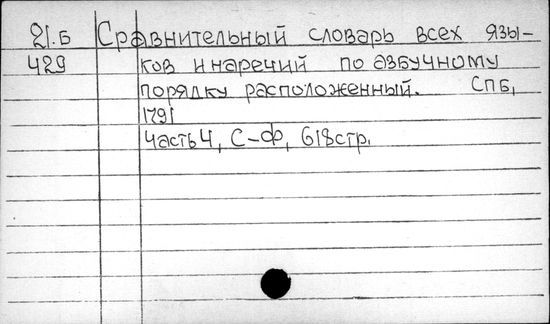 21.Б Сравнительный словарь всех язы-
429 ков и наречий по азбучному
порядку расположенный. СПБ,
1791
Часть 4, С-Ф, 618 стр.